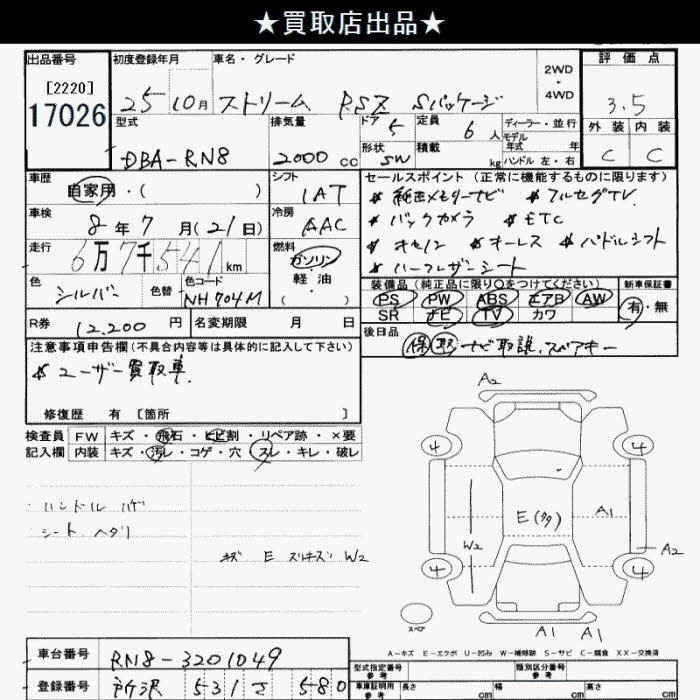 ★買取店出品★
出品番号 初度登録年月 車名・グレード 2WD・4WD 評価点
[2220]
17026
25 10月 ストリーム RSZ Sパッケージ 3.5
型式 排気量 ドア 5 定員 6人 ディーラー・並行 外装 内装
モデル年式 年
DBA-RN8 2000cc 形状 SW 積載 kg ハンドル 左・右 C C
車歴 シフト セールスポイント(正常に機能するものに限ります)
自家用・( ) 1AT *純正メモリーナビ *フルセグTV
車検 冷房 *バックカメラ *ETC
8年7月(21日) AAC *キセノン *キーレス *パドルシフト
走行 燃料 *ハーフレザーシート
6万7千541km ガソリン・軽油・( )
色 色替 色コード 装備品(純正品に限り○をつけてください) 新車保証書
シルバー NH704M PS PW ABS エアB AW 有・無
SR ナビ TV カワ
R券 12,200円 名変期限 月 日 後日品
保 取 ナビ取説、スペアキー
注意事項申告欄(不具合内容等は具体的に記入して下さい)
*ユーザー買取車
修復歴 有 [箇所 ]
検査員 FW キズ・飛石・ヒビ割・リペア跡・×要
記入欄 内装 キズ・汚レ・コゲ・穴・スレ・キレ・破レ
ハンドル ハゲ
シート ヘタリ
キズ E スリキズ W2
A2
4 4
E(タタ) A1
W2 A2
4 4
スペア
A1 A1
A-キズ E-エクボ U-凹み W-補修跡 S-サビ C-腐食 XX-交換済
車台番号 RN8-3201049
型式指定番号 参考 類別区分番号 参考
登録番号 所沢 531 さ 580
車庫証明用 参考 長さ cm 幅 cm 高さ cm